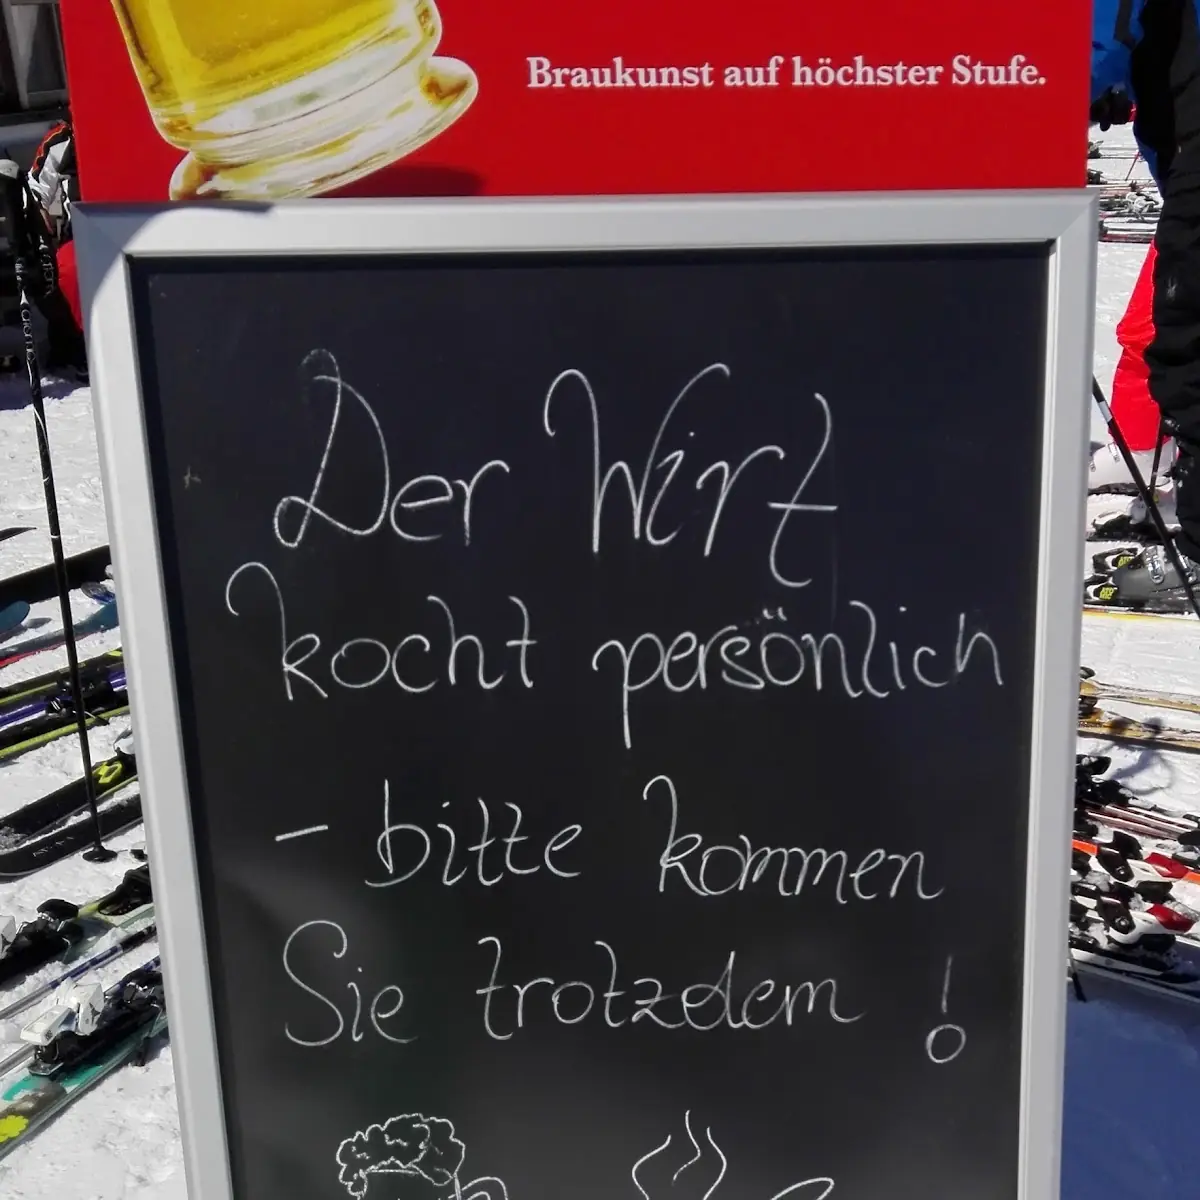 Braukunst auf höchster Stufe.
Der Wirt
kocht persönlich
- bitte kommen
Sie trotzdem!